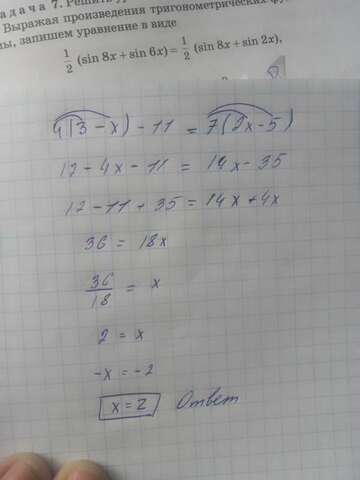 адача 7. Решить
Выражая произведения тригонометрических фу
ы, запишем уравнение в виде
1/2 (sin 8x + sin 6x) = 1/2 (sin 8x + sin 2x),
4(3 - x) - 11 = 7(2x - 5)
12 - 4x - 11 = 14x - 35
12 - 11 + 35 = 14x + 4x
36 = 18x
36/18 = x
2 = x
-x = -2
x = 2 Ответ